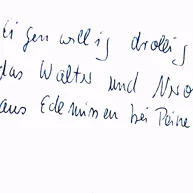 eigenwillig drollig
das Walter und
aus Edemissen bei Peine